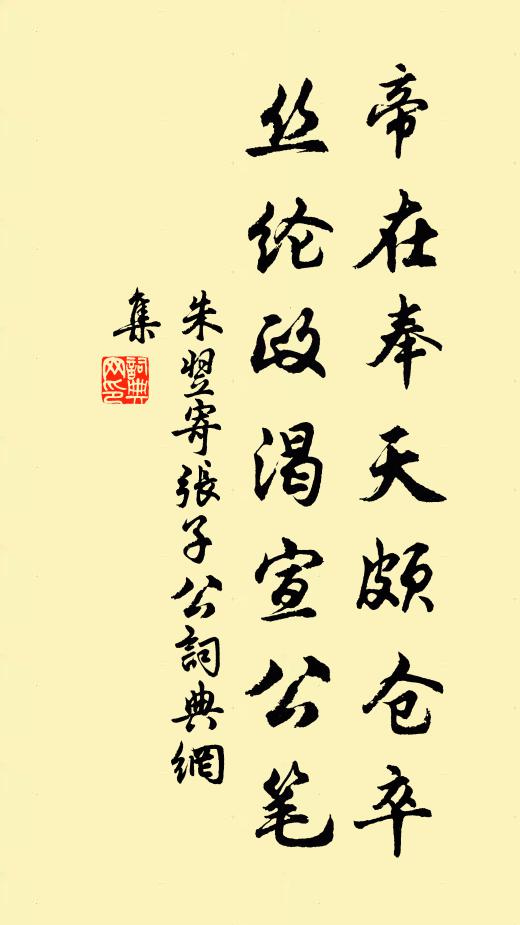 帝在奉天颇仓卒
丝纶政渴宣公笔
朱翌寄張子公詞典網
集
詞典
网印